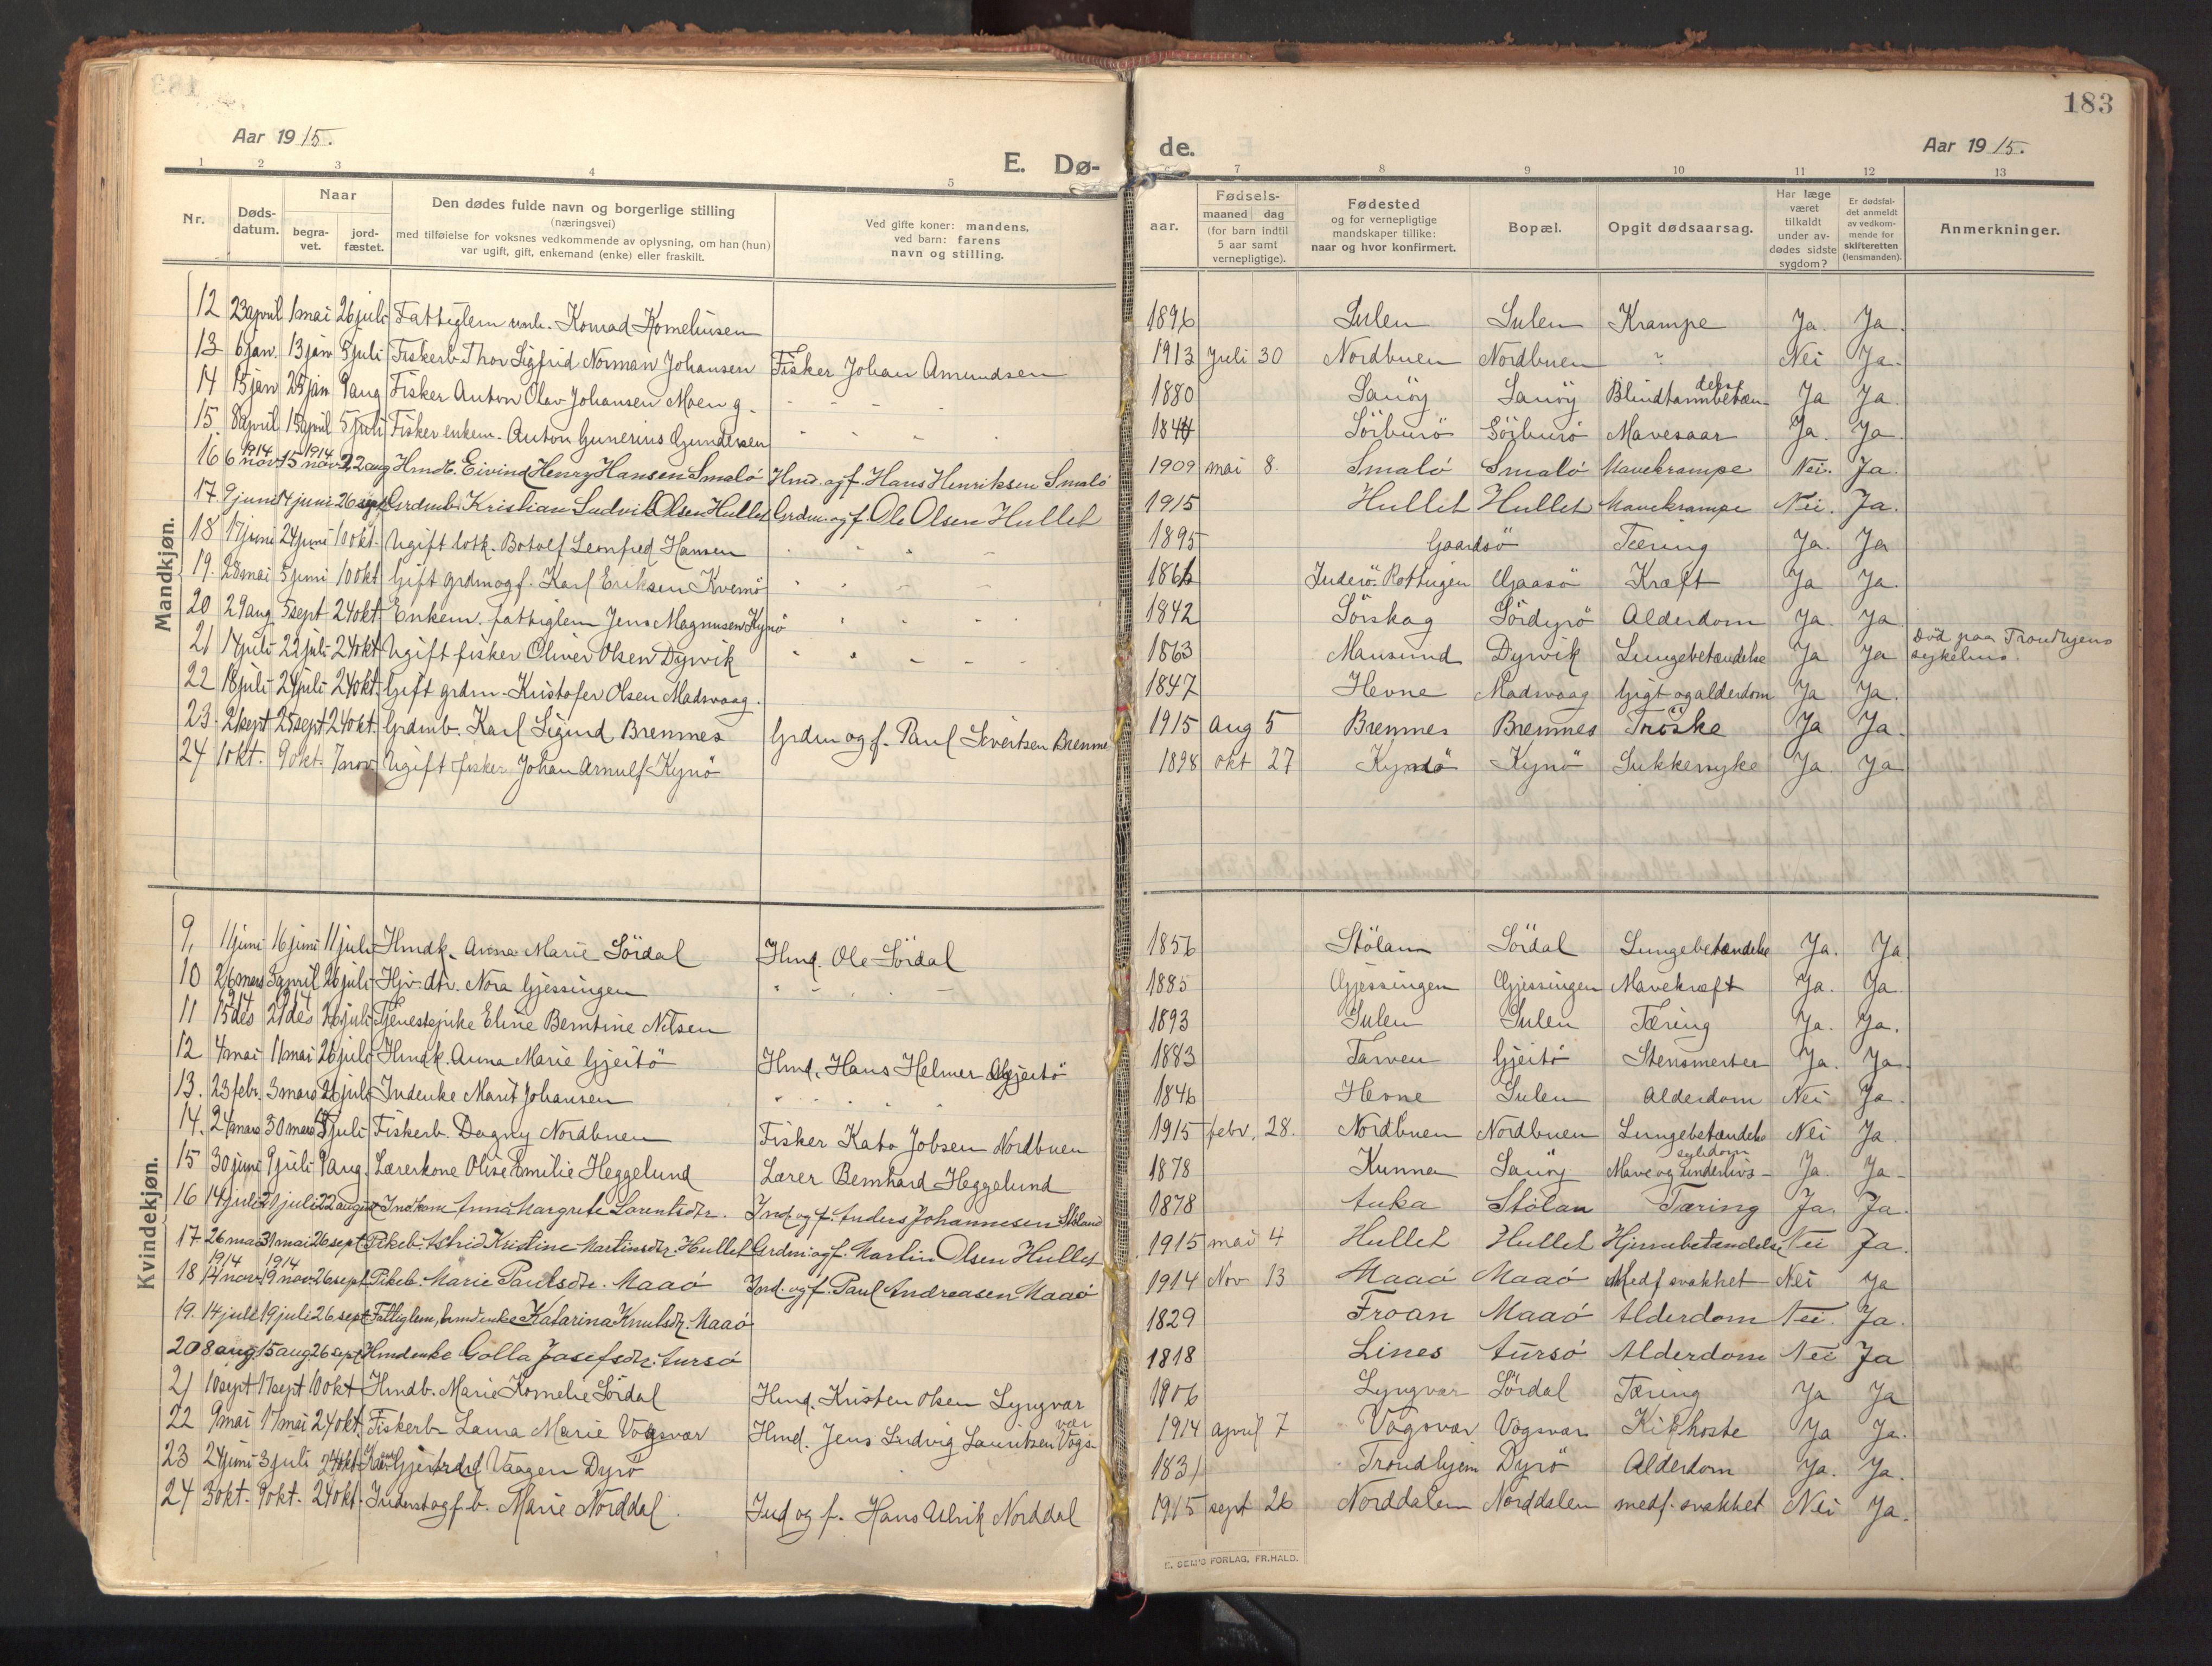 183
Aar 1915.
E. Dø-
de.
Aar 1915.
1 2 3 4 5 7 8 9 10 11 12 13
Nr.
Døds-
datum.
Naar
begra-
vet.
jord-
fæstet.
Den dødes fulde navn og borgerlige stilling
(næringsvei)
med tilføielse for voksnes vedkommende av oplysning, om han (hun)
var ugift, gift, enkemand (enke) eller fraskilt.
Ved gifte koner: mandens,
ved barn: farens
navn og stilling.
aar.
Fødsels-
maaned dag
(for barn indtil
5 aar samt
vernepligtige).
Fødested
og for vernepligtige
mandskaper tillike:
naar og hvor konfirmert.
Bopæl.
Opgit dødsaarsag.
Har læge
været
tilkaldt
under av-
dødes sidste
sygdom?
Er dødsfal-
det anmeldt
av vedkom-
mende for
skifteretten
(lensmanden).
Anmerkninger.
Mandkjøn.
12 23april 1mai 26juli Fattiglem unk. Konrad Korneliusen 1896 Sulen Sulen Krampe Ja. Ja.
13 6jan. 13jan 5juli Fiskerb. Thor Sigfrid Norman Johansen Fisker Johan Amundsen 1913 Juli 30 Nordbuen Nordbuen ? Nei Ja.
14 15jan 25jan 9aug Fisker Anton Olav Johansen Moen g. 1880 Sauöy Sauöy Blindtarmbetæn-delse Ja Ja.
15. 8april 15april 5juli Fisker enkem. Anton Gunerius Gundersen 1844 Sörburö Sörburö Mavesaar Ja. Ja.
16 6nov 1914 15nov 1914 22aug Hmdb. Eivind Henry Hansen Smaló Hmd. og f. Hans Henriksen Smaló 1909 mai 8. Smaló Smaló Mavekrampe Nei. Ja.
17. 9juni 14juni 26sept Grdmb. Kristian Ludvik Olsen Hullet Grdm. og f. Ole Olsen Hullet 1915 Hullet Hullet Mavekrampe Nei. Ja.
18 17juni 24juni 10okt. Ugift losk. Botolf Leonfred Hansen 1895 Gaardsö Tæring Ja. Ja
19. 28mai 5juni 10okt Gift grdm og f. Karl Eriksen Kvernö 1866 Inderö. Rottingen Gaasö Kræft Ja Ja.
20 29aug 5sept 24okt Enkem. fattiglem Jens Magnusen Kynö 1842 Sörskag Sördyrö Alderdom Ja. Ja
21 14juli 22juli 24okt Ugift fisker Oliver Olsen Dyrvik 1863 Mausund Dyrvik Lungebetændelse Ja Ja Död paa Trondhjems sykehus.
22 18juli 24juli 24okt. Gift grdm. Kristofer Olsen Madsvaag. 1847 Hevne Madsvaag Gigt og alderdom Ja Ja.
23. 21sept 25sept 24okt. Grdmb. Karl Sigurd Bremnes Grdm og f. Paul Sivertsen Bremne 1915 aug 5 Bremnes Bremnes Tröske Ja Ja.
24 1okt. 9okt. 7nov Ugift fisker Johan Arnulf Kynö 1898 okt 27 Kynö Kynö Sukkersyke Ja Ja
Kvindekjøn.
9, 11juni 16juni 11juli Hmdk. Anna Marie Sördal Hmd. Ole Sördal 1856 Stölan Sördal Lungebetændelse Ja. Ja
10 26mars 3april 26juli Hjv. dtr. Nora Gjessingen 1885 Gjessingen Gjessingen Mavekræft Ja. Ja.
11 15des 14 21des 14 26juli Tjenestepike Eline Berntine Nilsen 1893 Sulen Sulen Tæring Ja. Ja.
12 4mai 11mai 26juli Hmdk. Anna Marie Gjeitö Hmd. Hans Helmer Gjeitö 1883 Tarven Gjeitö Stensmerter Ja. Ja
13. 23febr. 3mars 26juli Indenke Marit Johansen 1846 Hevne Sulen Alderdom Nei Ja.
14. 24mars 30mars 5juli Fiskerb. Dagny Nordbuen Fisker Kato Jobsen Nordbuen 1915 febr. 28. Nordbuen Nordbuen Lungebetændels Nei Ja
15 30juni 9juli 9aug. Lærerkone Olise Emilie Heggelund Lærer Bernhard Heggelund 1878 Kunna Sauöy Mave og underlivs- sykdom Ja. Ja-
16 14juli 21juli 22august Indkone Anna Margrete Larentsdtr. Ind. og f. Anders Johannesen Stöland 1878 Auka Stölan Tæring Ja. Ja.
17 26mai 31mai 26sept Pikeb. Astrid Kristine Martinsdtr. Hullet Grdm. og f. Martin Olsen Hullet 1915 mai 4 Hullet Hullet Hjernebetændelse Nei Ja.
18 14nov 1914 19nov 1914 26sept Pikeb. Marie Paulsdtr. Maaó Ind. og f. Paul Andreasen Maaó 1914 Nov 13 Maaó Maaó Medf svakhet Nei Ja
19. 14juli 19juli 26sept Fattiglem, hmdenke Katarina Knutsdtr. Maaó 1829 Froan Maaó Alderdom Nei. Ja.
20 8aug. 15aug. 26sept Hmdenke Golla Josefsdtr. Aursó 1818 Lines Aursó Alderdom Nei Ja
21 10sept 17sept 10okt Hmdb. Marie Kornelie Sördal Hmd. Kristen Olsen Lyngvær 1906 Lyngvær Sördal Tæring Ja Ja
22 9mai 17mai 24okt. Fiskerb Laura Marie Vogsvær Hmd. Jens Ludvig Lauritsen Vogs-vær 1914 april 7 Vogsvær Vogsvær Kikhoste Ja Ja.
23 24juni 3juli 24okt Gjertrud Vaagen Dyrö 1831 Trondhjem Dyrö Alderdom Ja. Ja.
24 3okt. 9okt. 24okt. Inderst og f. b. Marie Norddal. Ind og f. Hans Ulrik Norddal 1915 sept 26 Norddalen Norddalen medf. svakhet Nei Ja.
E. SEM'S FORLAG, FR.HALD.